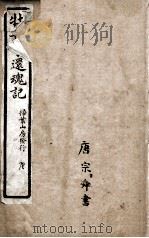 牡
還魂記
掃葉山房發行
唐宗
書